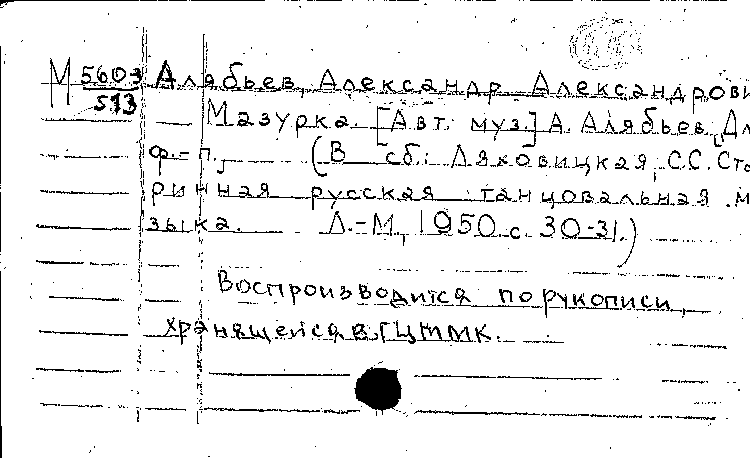 М 5603/513 Алябьев, Александр Александрови
Мазурка. [Авт. муз.] А. Алябьев, [Дл
ф.-п.] (В сб.: Ляховицкая, С.С. Ста
ринная русская танцовальная м
зыка. Л.-М., 1950 с. 30-31.)
Воспроизводится по рукописи,
хранящейся в ГЦММК.